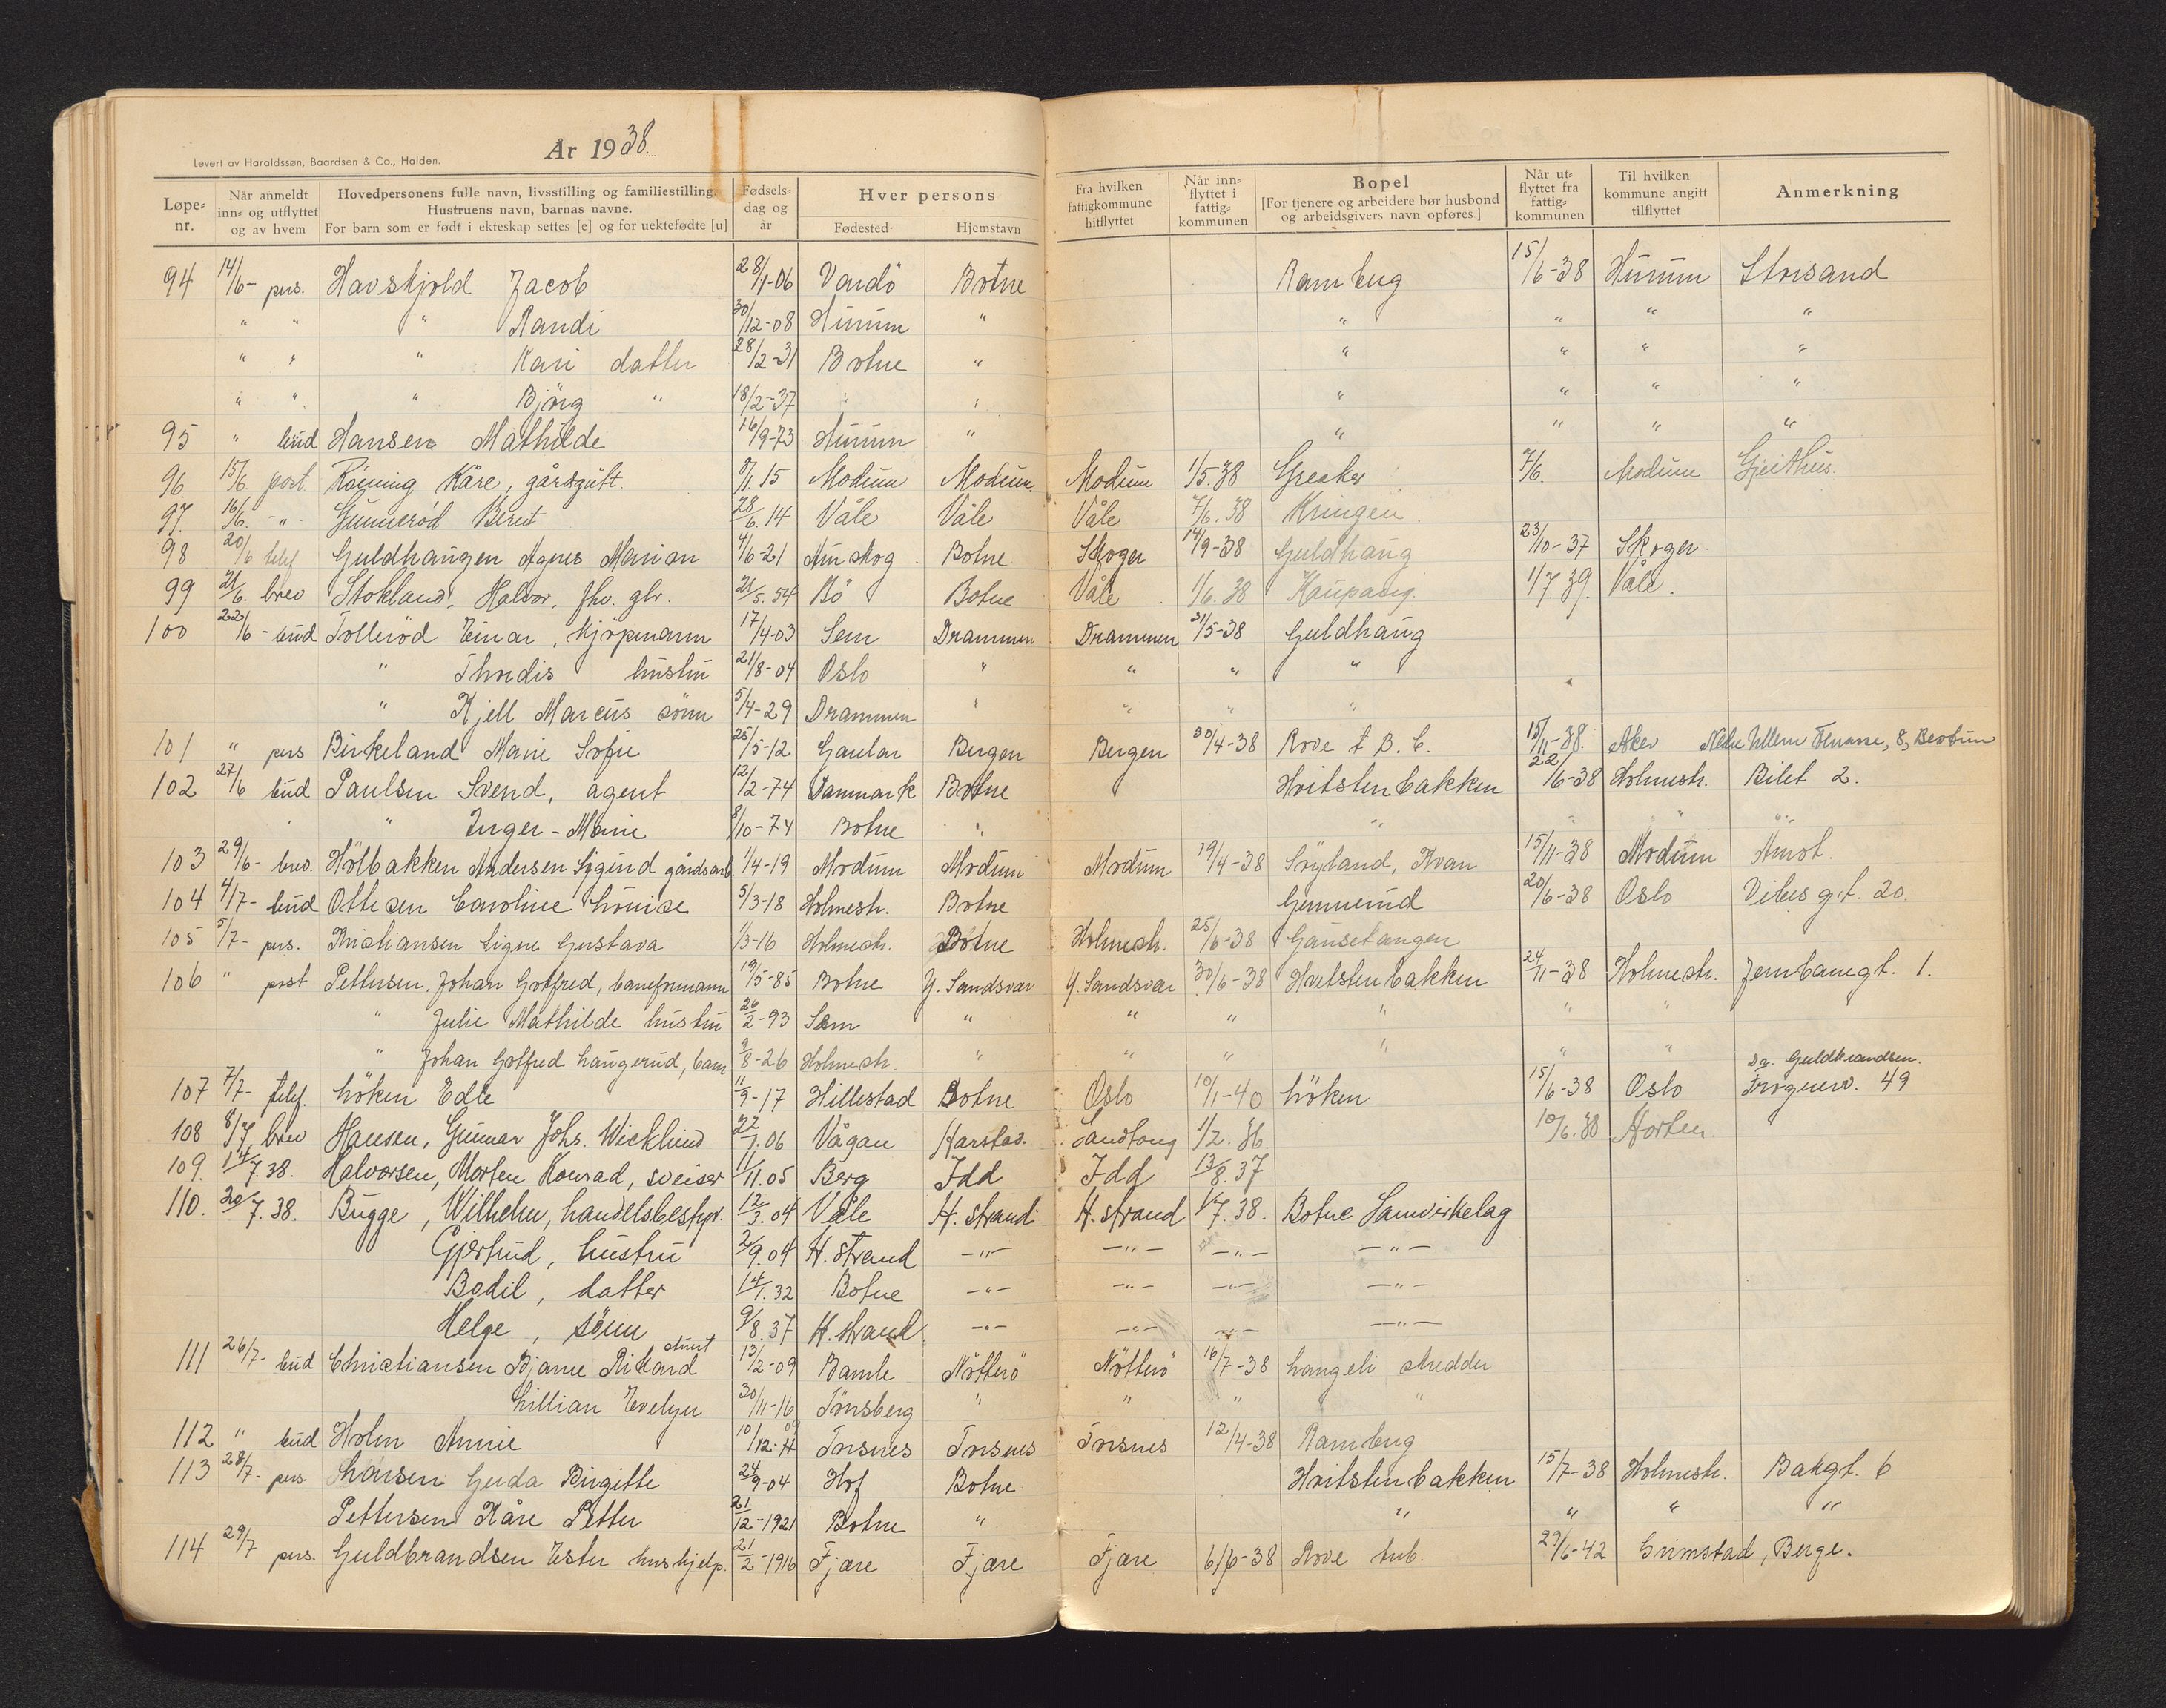 År 1938.
Levert av Haraldssøn, Baardsen & Co., Halden.
Løpe-nr. Når anmeldt inn- og utflyttet og av hvem Hovedpersonens fulle navn, livsstilling og familiestilling. Hustruens navn, barnas navne. For barn som er født i ekteskap settes [e] og for uektefødte [u] Fødsels-dag og år Hver persons Fødested. Hjemstavn Fra hvilken fattigkommune hitflyttet Når inn-flyttet i fattig-kommunen Bopel [For tjenere og arbeidere bør husbond og arbeidsgivers navn opføres] Når ut-flyttet fra fattig-kommunen Til hvilken kommune angitt tilflyttet Anmerkning
94 14/6- pers. Havskjold Jacob 28/1-06 Vardö Botne Ramberg 15/6-38 Hurum Storsand
" " " Randi 30/12-08 Hurum " " " " "
" " " Kari datter 28/2-31 Botne " " " " "
" " " Björg " 18/2-37 " " " " " "
95 " bud Hansen Mathilde 16/9-73 Hurum " " " " "
96 15/6. post. Röining Kåre, gårdsgutt. 8/1.15 Modum Modum. Modum 1/5.38 Greaker 7/6. Modum Gjeithus.
97. 16/6. -"- Gunnerød Berit 28/6.14 Våle Våle Våle 7/6.38 Kringen.
98 20/6 telf Guldhaugen Agnes Marion 4/6-21 Aurskog Botne Skoger 14/9-38 Guldhaug 23/10-37 Skoger
99 21/6. brev Stokland, Halvor, fhv. gbr. 21/5.54 Bö Botne Våle 1/6.38 Kaupang. 1/7.39. Våle.
100 22/6- bud Tolleröd Einar, Kjöpmann 17/4-03 Sem Drammen Drammen 31/5-38 Guldhaug
" Thordis hustru 21/8-04 Oslo " " " "
" Kjell Marcus sönn 5/4-29 Drammen " " " "
101 " pers Birkeland Marie Sofie 25/5-12 Gaular Bergen Bergen 30/4-38 Rove t B. C. 15/11-38. Aker Nedre Ullern Terrasse, 8, Bestun
102 27/6 bud Paulsen Svend, agent 12/2-74 Danmark Botne Hvitstenbakken 22/6-38 Holmestr. Bilet 2.
" Inger-Marie 8/10-74 Botne " " " " "
103 29/6- brev. Hölbakken Andersen Sigurd gårdsarb. 1/4-19 Modum Modum Modum 19/4-38 Söyland, Kvan 15/11-38 Modum Åmot.
104 4/7- bud Ottesen Caroline Louise 5/3-18 Holmestr. Botne Gunnerud 20/6-38 Oslo Vibes gt. 20.
105 5/7- pers. Kristiansen Signe Gustava 1/3-16 Holmestr. Botne Holmestr. 25/6-38 Gausetangen
106 " post Pettersen, Johan Gotfred, baneformann 19/5-85 Botne Y. Sandsvær Y. Sandsvær 30/6-38 Hvitstenbakken 24/11-38 Holmestr. Jernbanegt. 1.
" Julie Mathilde hustru 26/2-93 Sem " " " " " "
" Johan Gotfred Haugerud, barn 9/8-26 Holmestr. " " " " " "
107 7/7- telf. Löken Edle 11/9-17 Hillestad Botne Oslo 10/1-40 Löken 15/6-38 Oslo Dr. Guldbrandsen. Frognerv. 49
108 8/7 brev Hansen, Gunnar Johs. Wicklund 22/1.06 Vågan Harstad. Sandtorg 1/2.36 10/6.38 Horten.
109. 14/7.38. Halvorsen, Morten Konrad, sveiser 11/11.05 Berg Idd Idd 13/8.37
110. 20/7.38. Bugge, Wilhelm, handelsbestyr. 12/3.04 Våle H. strand H. strand 1/7.38. Botne Samvirkelag
Gjertrud, hustru 2/9.04 H. strand -"- -"- -"- -"-
Bodil, datter 14/1.32 Botne -"- -"- -"- -"-
Helge, sönn 9/8.37 H. strand -"- -"- -"- -"-
111 26/7- bud Christiansen Bjarne Rikard 13/2-09 Bamle Nötterö Nötterö 16/7-38 Langeli skredder
Lillian Evelyn 30/11-16 Tönsberg " " " "
112 " bud Holm Annie 10/12-09 Torsnes Torsnes Torsnes 12/4-38 Ramberg
113 28/7- pers Thorsen Gerda Birgitte 24/9-04 Hof Botne Hvitstenbakken 15/7-38 Holmestr. Bakgt. 6
Pettersen Kåre Petter 21/12-1921 Botne " " " " "
114 29/7 pers. Guldbrandsen Ester hushjelp. 21/2-1916 Fjære Fjære Fjære 6/6-38 Rove tub. 29/6-42 Grimstad, Berge.